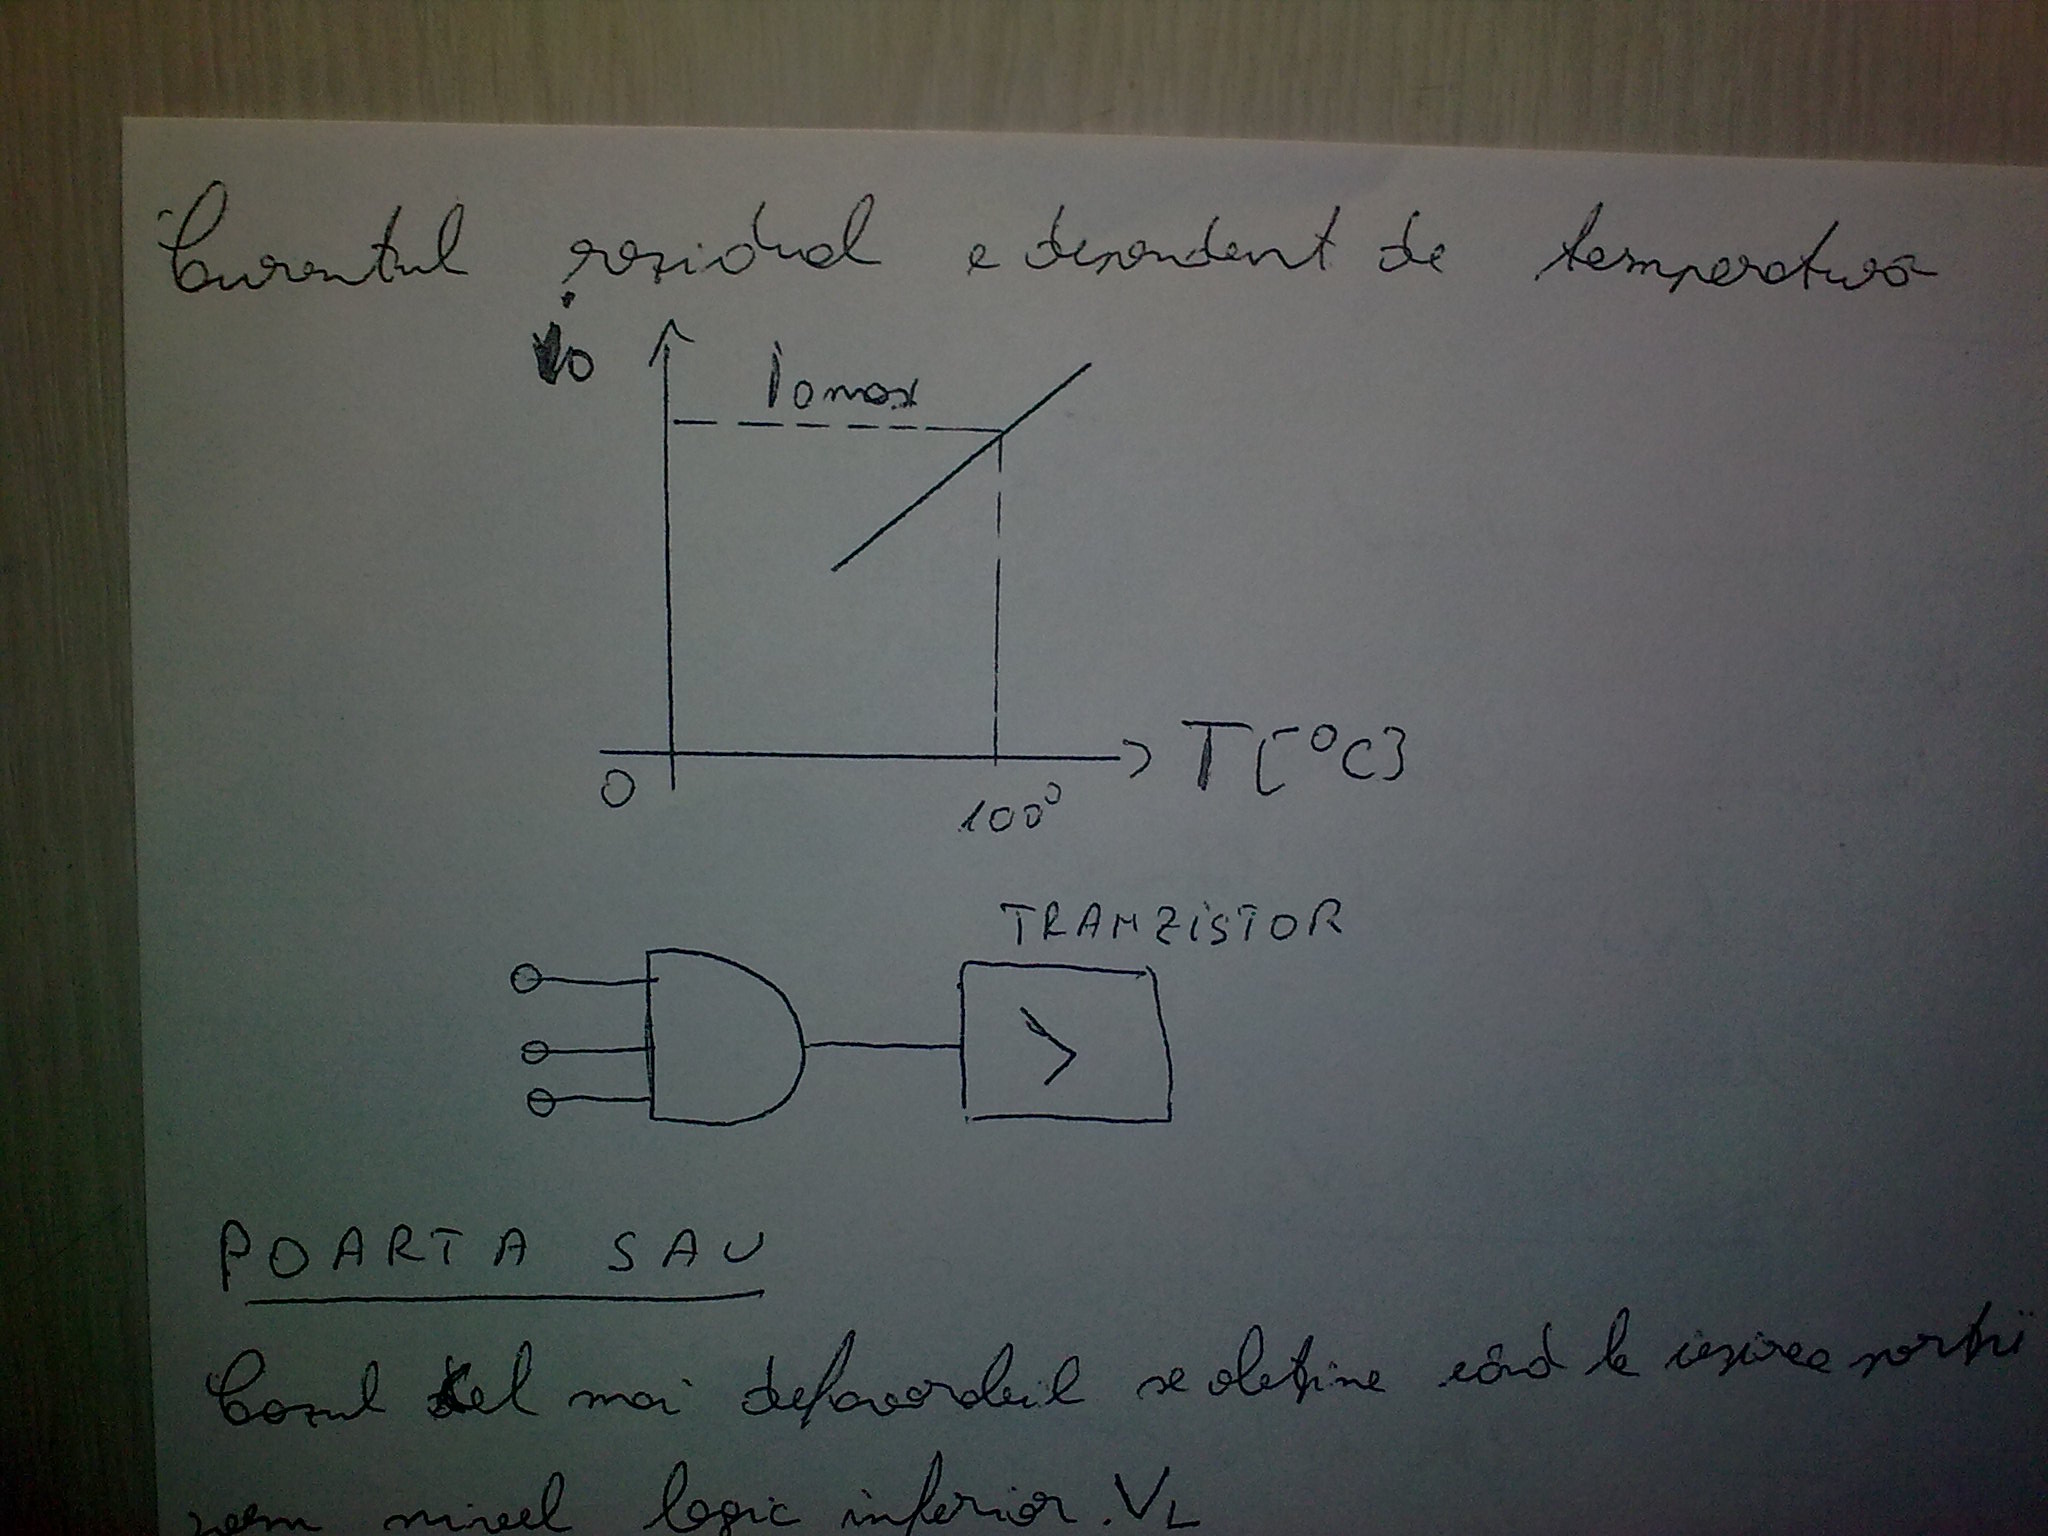 Curentul rezidual e dependent de temperatură
i0
I0max
T[°C]
0
100°
TRANZISTOR
POARTA SAU
Cazul cel mai defavorabil se obține când la ieșirea porții
avem nivel logic inferior. VL